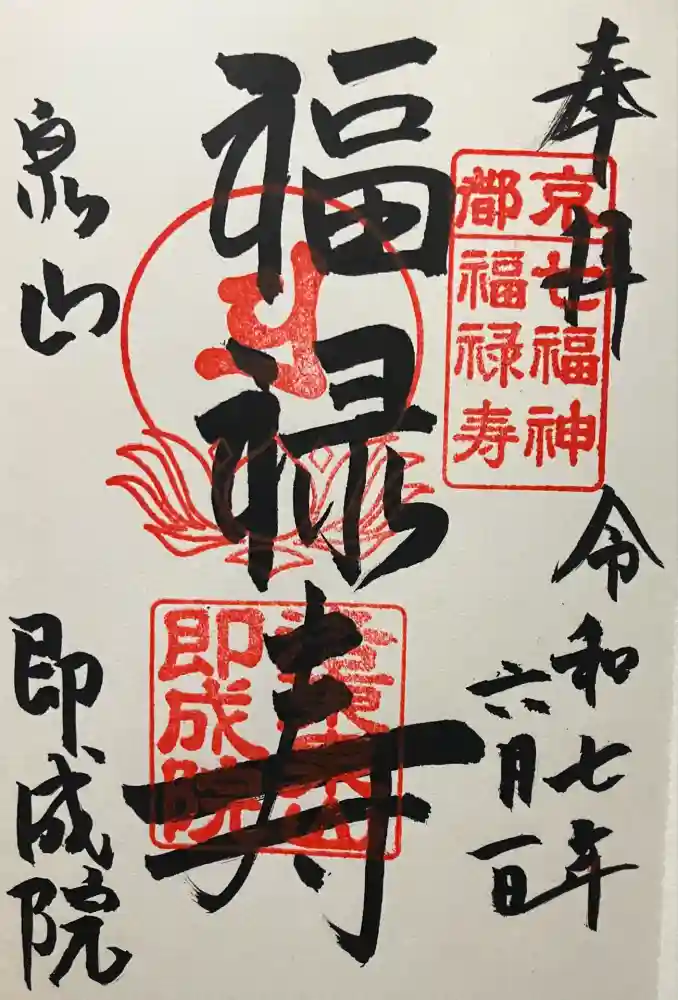 奉拝
令和七年
六月一日
京都
七福神
福禄寿
福禄寿
即成院
泉山
即成院